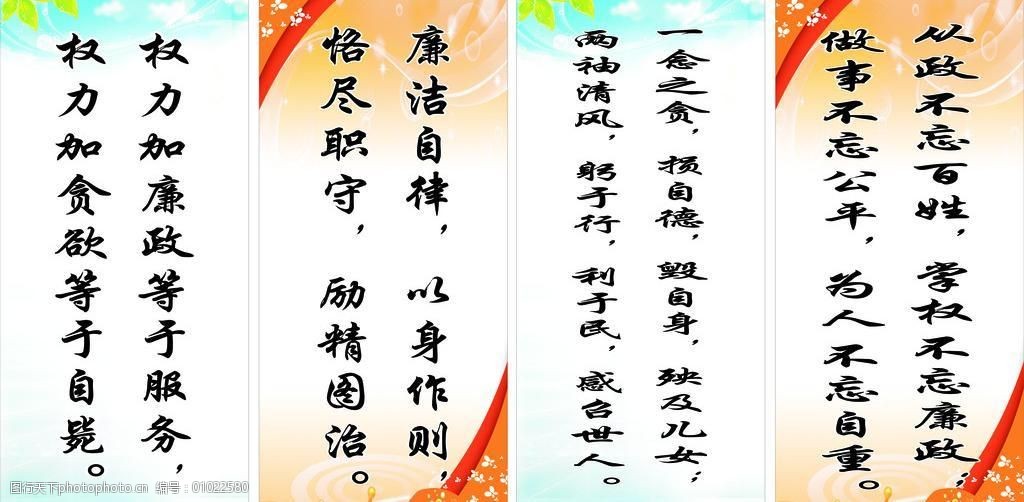 权力加廉政等于服务，
权力加贪欲等于自毙。
廉洁自律，以身作则，
恪尽职守，励精图治。
一念之贪，损自德，毁自身，殃及儿女；
两袖清风，躬于行，利于民，感召世人。
从政不忘百姓，掌权不忘廉政；
做事不忘公平，为人不忘自重。
图行天下 photophoto.cn 编号：01022580